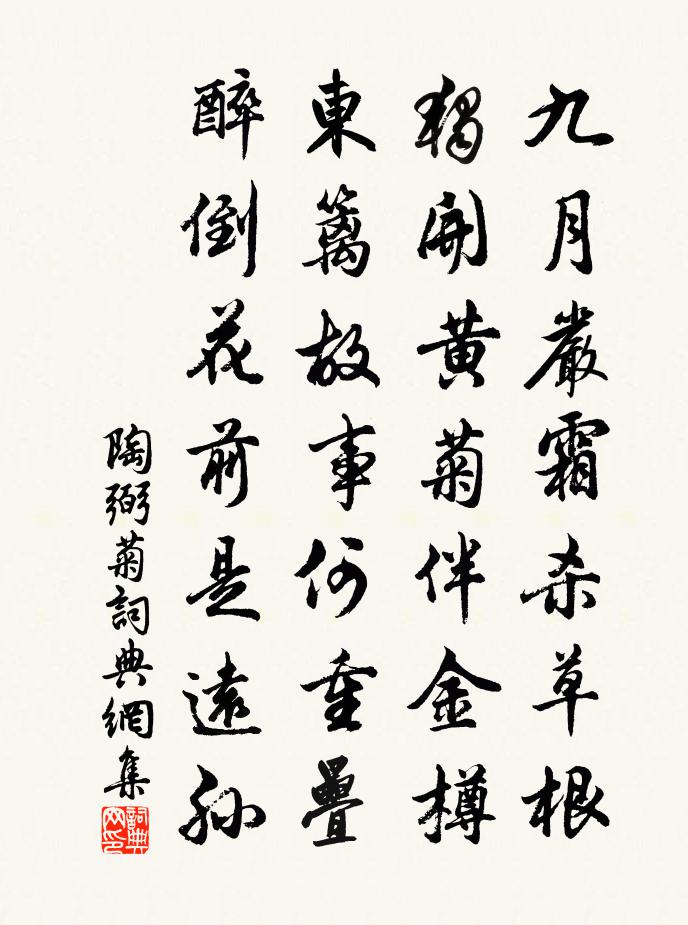 九月嚴霜杀草根
獨開黄菊伴金樽
東籬故事何重疊
醉倒花前是遠孫
陶弼菊詞典網集
詞典网印